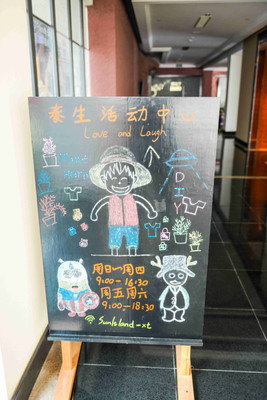 泰生活动中心
Love and Laugh
DIY
周日一周四
9:00-16:30
周五周六
9:00-18:30
SunIsland-xt